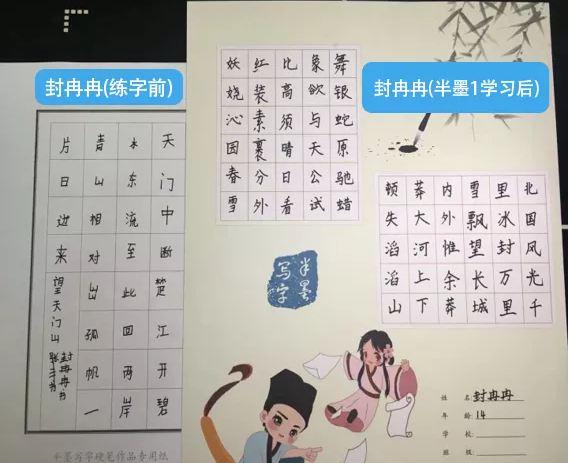 封冉冉(练字前)
天门中断楚江开碧
水东流至此回两岸
青山相对出孤帆一
片日边来
望天门山
封冉冉书
半墨写字硬笔作品专用纸
封冉冉(半墨1学习后)
北国风光千
里冰封万里
雪飘望长城
内外惟余莽
莽大河上下
顿失滔滔山
舞银蛇原驰蜡
象欲与天公试
比高须晴日看
红装素裹分外
妖娆沁园春雪
半墨
写字
姓名:封冉冉
年龄:14
学校:
班级: